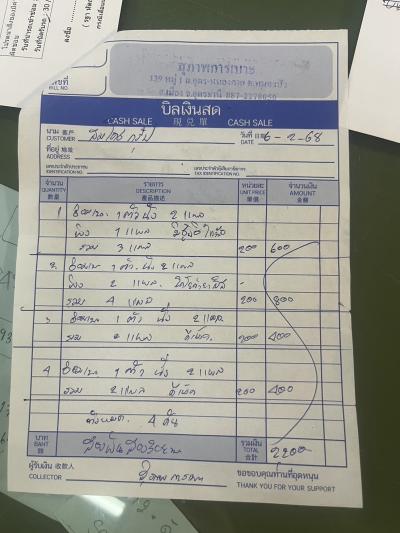 สุภาพการเบาะ
139 หมู่ 1
อ.เมือง จ.อุดรธานี
เลขที่
BILL NO.
บิลเงินสด
CASH SALE 現兌單 CASH SALE
นาม 客戶
CUSTOMER
วันที่ 日期
DATE 6-2-68
ที่อยู่
ADDRESS
เลขประจำตัวประชาชน
IDENTIFICATION NO.
เลขประจำตัวผู้เสียภาษีอากร
TAX IDENTIFICATION NO.
จำนวน
QUANTITY
數量
รายการ
DESCRIPTION
產品描述
หน่วยละ
UNIT PRICE
單價
จำนวนเงิน
AMOUNT
金額
1 ซ่อมเบาะ 1 ตัว นั่ง 2 แผล
พิง 1 แผล
รวม 3 แผล 200 600
2. ซ่อมเบาะ 1 ตัว นั่ง 2 แผล
พิง 2 แผล
รวม 4 แผล 200 800
3 ซ่อมเบาะ 1 ตัว นั่ง 2 แผล
รวม 2 แผล 200 400
4 ซ่อมเบาะ 1 ตัว นั่ง 2 แผล
รวม 2 แผล 200 400
ทั้งหมด 4 ตัว
บาท
BAHT
銖
สองพันสองร้อยบาท
รวมเงิน
TOTAL
合計
2200
ผู้รับเงิน 收款人
COLLECTOR
ขอขอบคุณท่านที่อุดหนุน
THANK YOU FOR YOUR SUPPORT